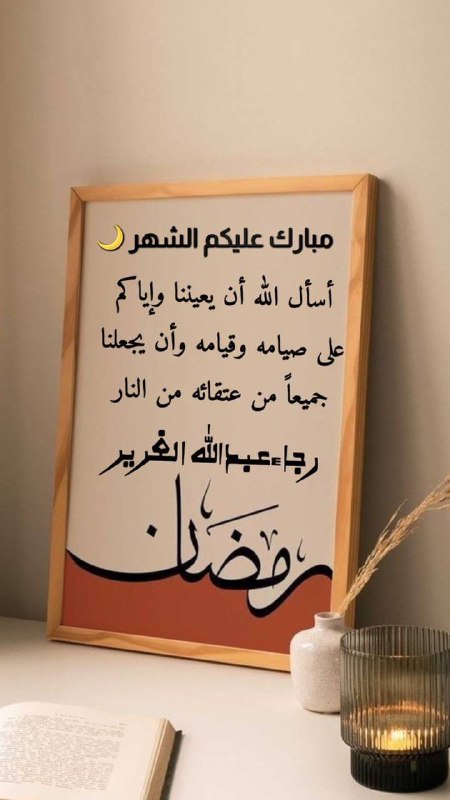 مبارك عليكم الشهر 🌙
أسأل الله أن يعيننا وإياكم
على صيامه وقيامه وأن يجعلنا
جميعاً من عتقائه من النار
رجاء عبدالله الغرير
رمضان